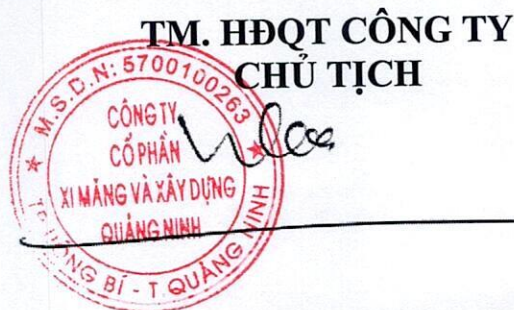 TM. HĐQT CÔNG TY
CHỦ TỊCH
M.S.D.N: 5700100263
CÔNG TY
CỔ PHẦN
XI MĂNG VÀ XÂY DỰNG
QUẢNG NINH
TP. UÔNG BÍ - T. QUẢNG NINH